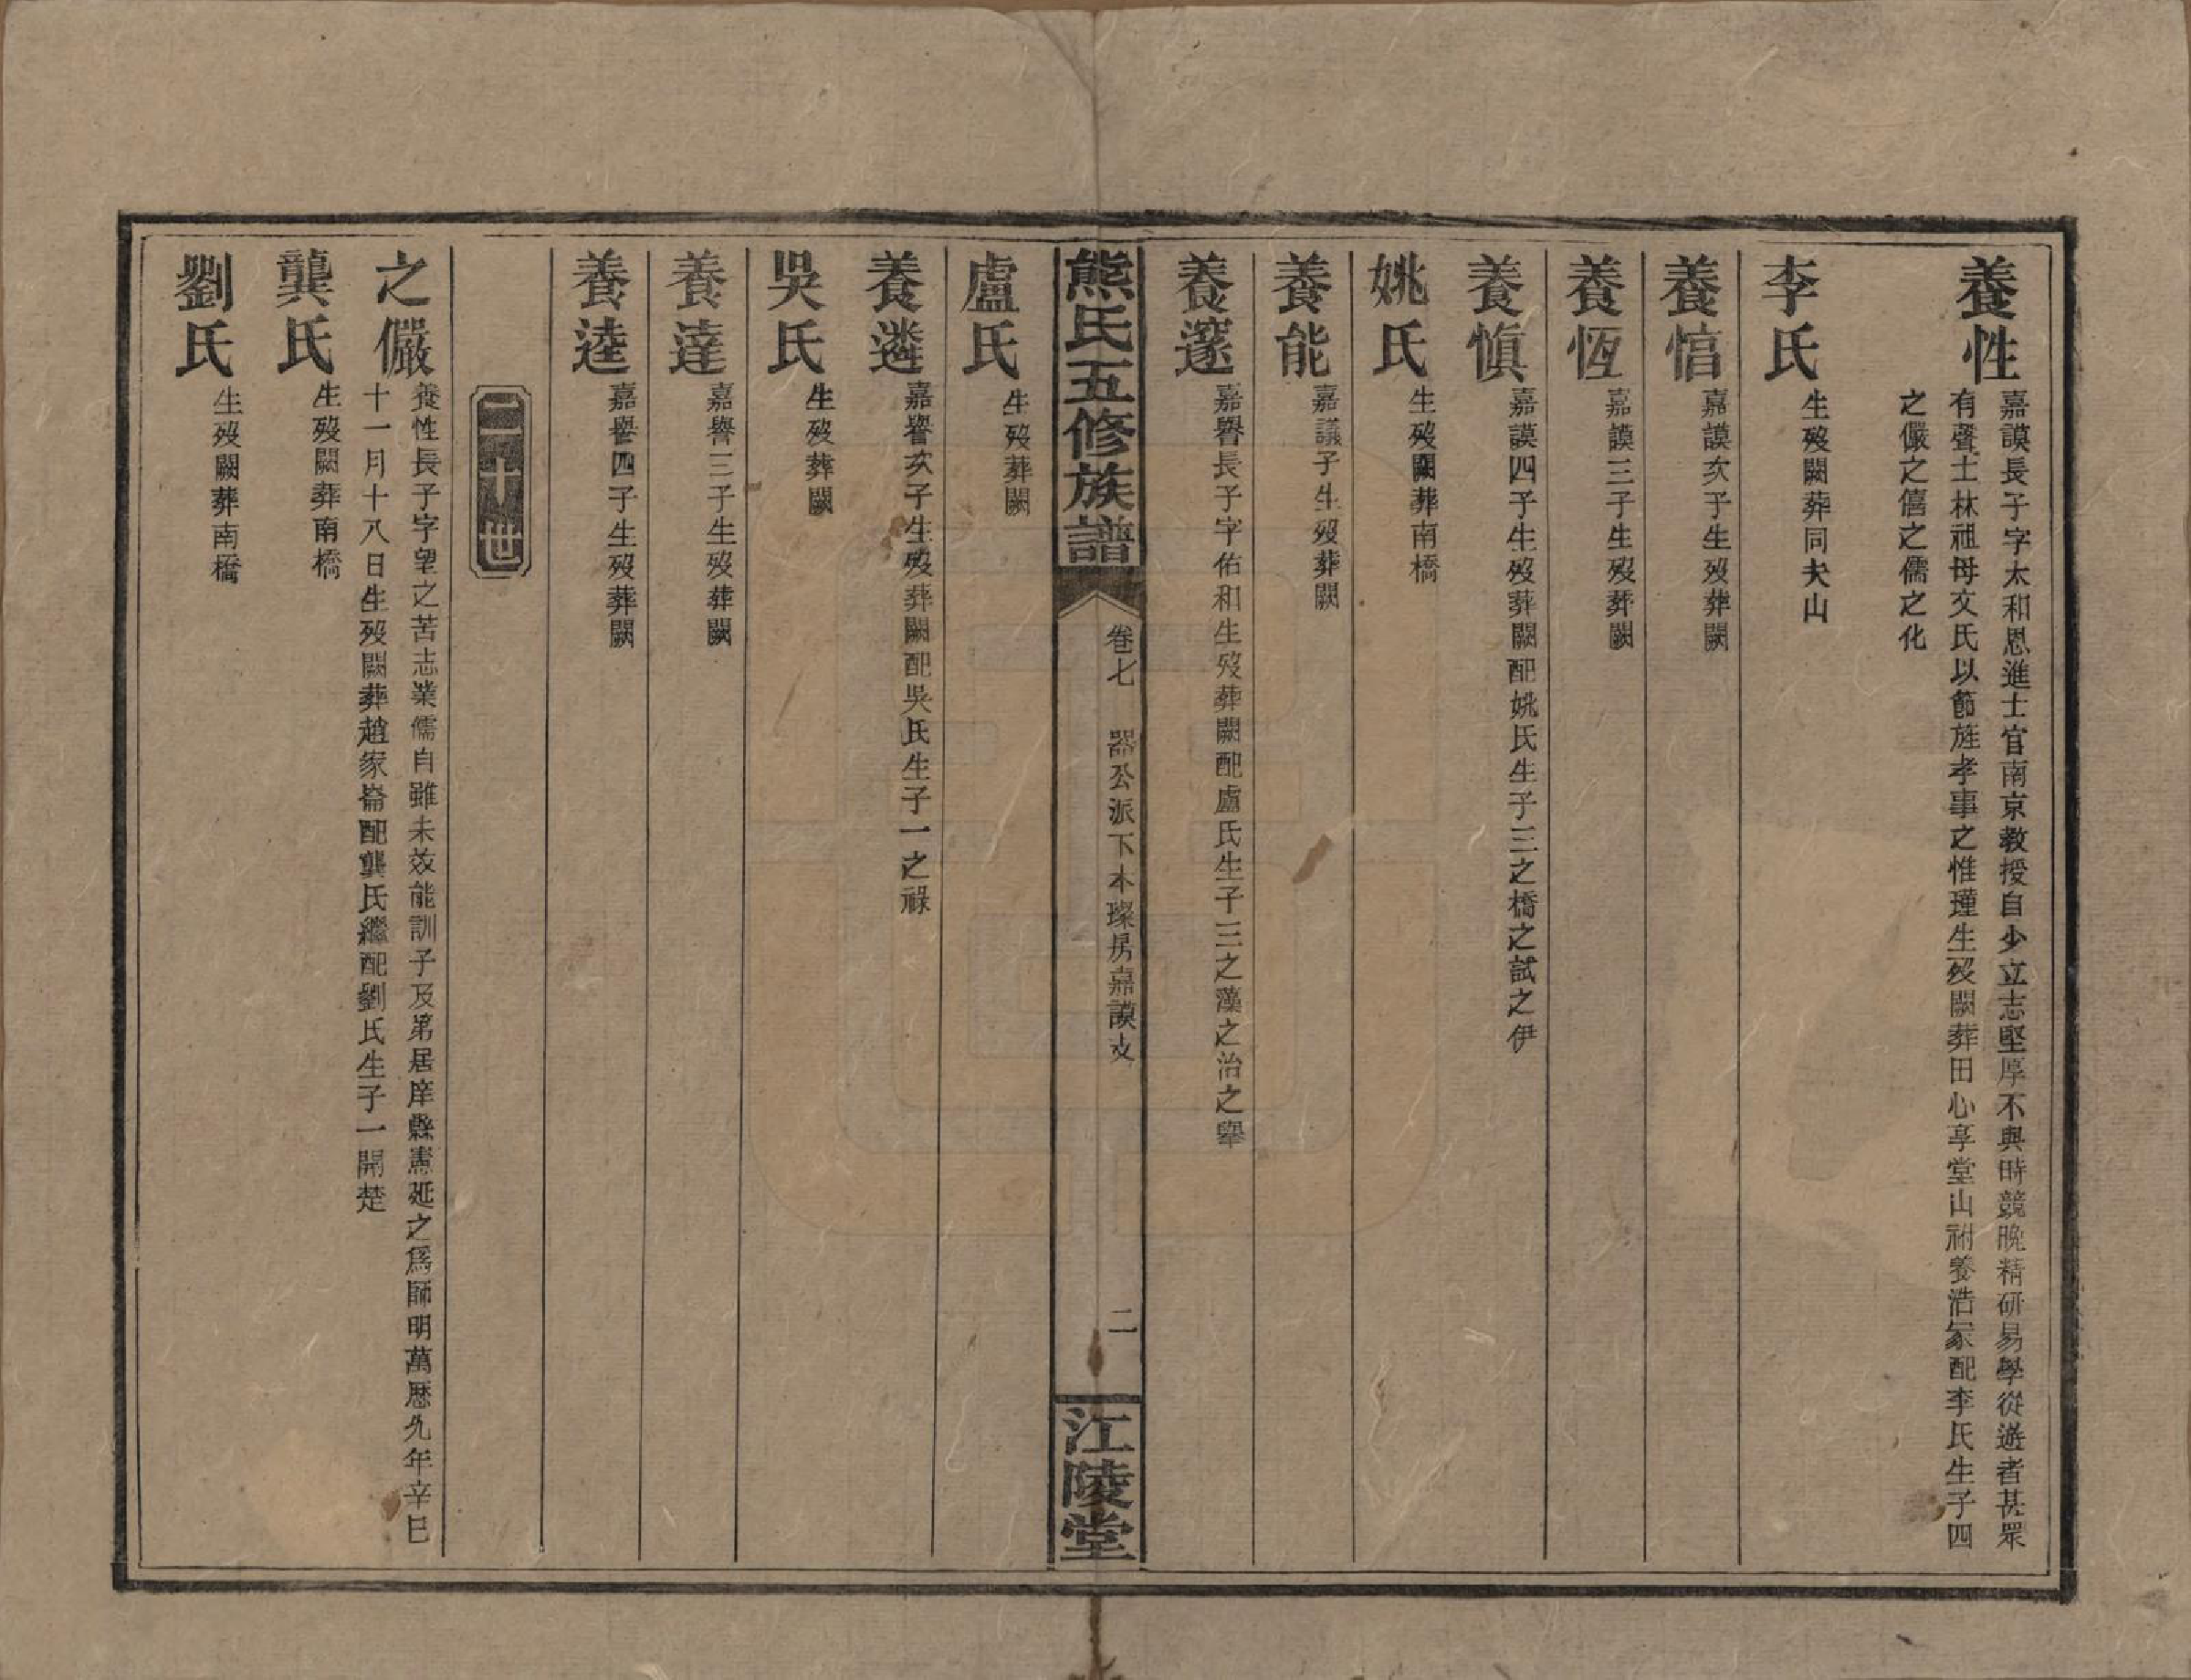 養性
嘉謨長子字太和恩進士官南京教授自少立志堅厚不與時競晚精研易學從遊者甚眾
有聲士林祖母文氏以節旌孝事之惟瑾生歿闕葬田心享堂山祔養浩冢配李氏生子四
之儼之僖之儒之化
李氏
生歿闕葬同夫山
養愭
嘉謨次子生歿葬闕
養恆
嘉謨三子生歿葬闕
養慎
嘉謨四子生歿葬闕配姚氏生子三之橋之試之伊
姚氏
生歿闕葬南橋
養能
嘉議子生歿葬闕
養邃
嘉譽長子字佑和生歿葬闕配盧氏生子三之藻之治之舉
熊氏五修族譜
卷七 器公派下本璨房嘉謨支
二
江陵堂
盧氏
生歿葬闕
養遴
嘉譽次子生歿葬闕配吳氏生子一之祿
吳氏
生歿葬闕
養達
嘉譽三子生歿葬闕
養逵
嘉譽四子生歿葬闕
二十世
之儼
養性長子字望之苦志業儒自雖未效能訓子及弟居庠縣憲延之為師明萬曆九年辛巳
十一月十八日生歿闕葬趙家崙配龔氏繼配劉氏生子一開楚
龔氏
生歿闕葬南橋
劉氏
生歿闕葬南橋